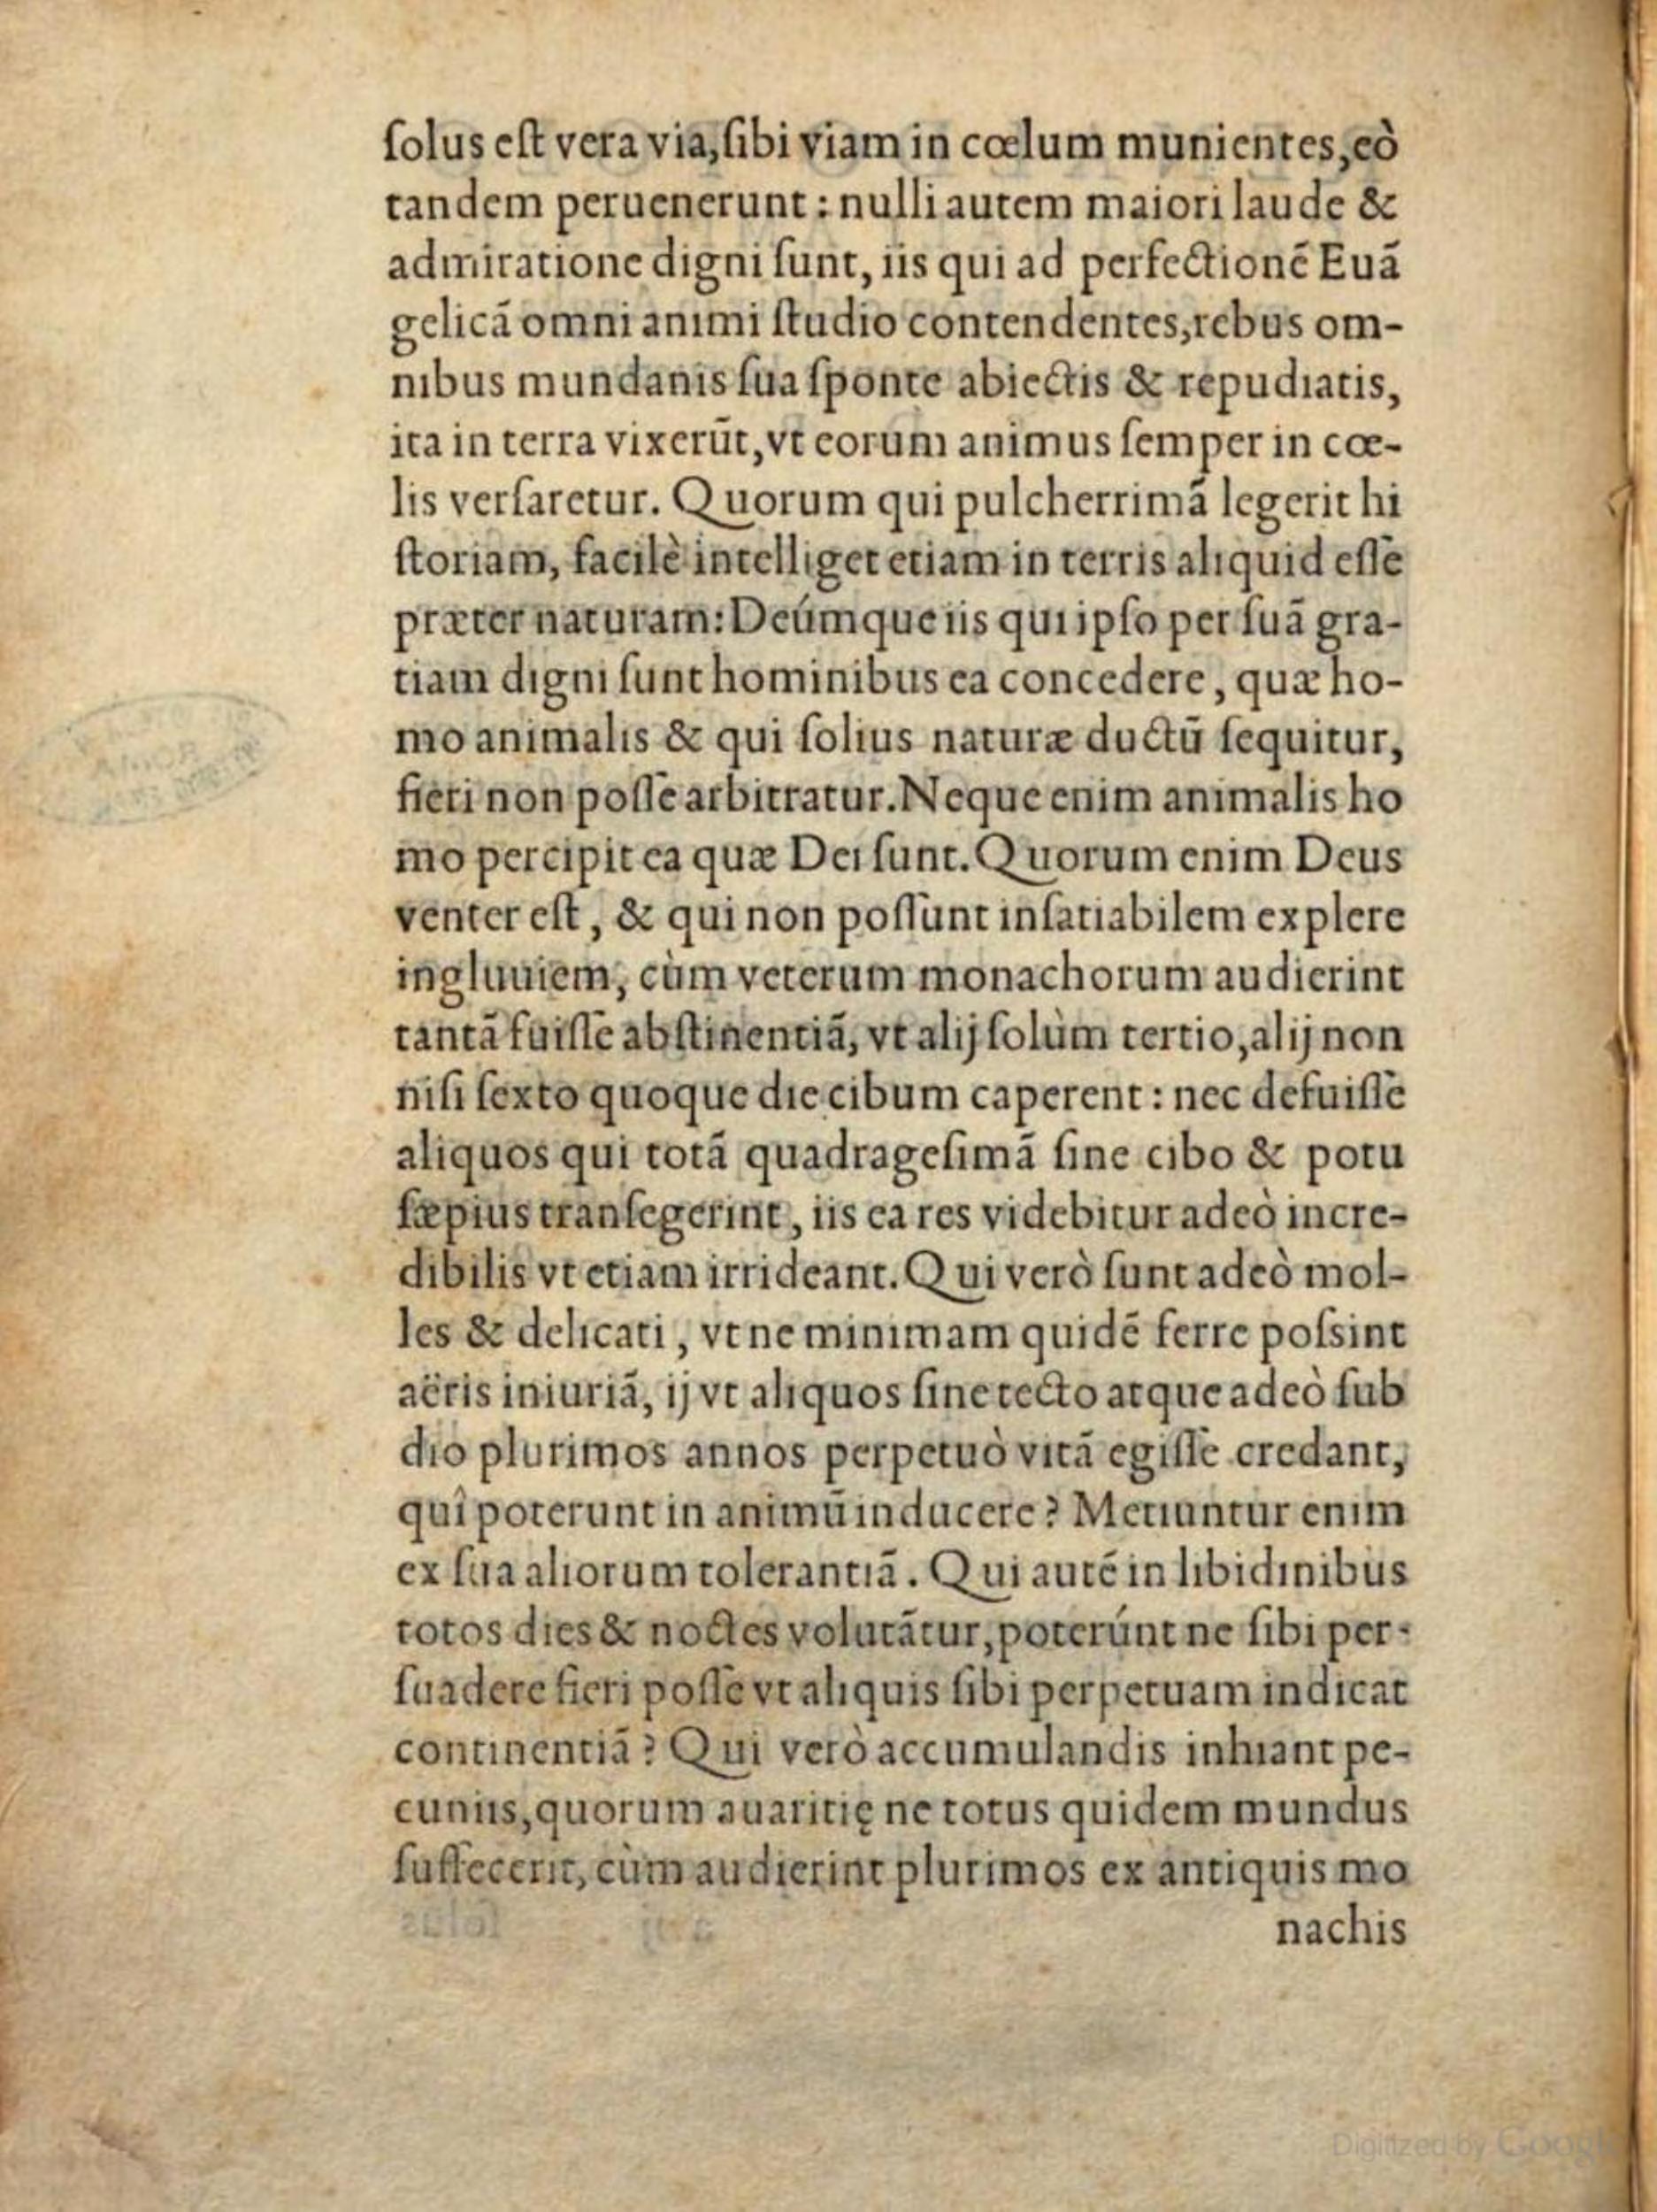 ſolus eſt vera via, ſibi viam in cœlum munientes, eò
tandem peruenerunt : nulli autem maiori laude &
admiratione digni ſunt, iis qui ad perfectionē Euā
gelicā omni animi ſtudio contendentes, rebus om-
nibus mundanis ſua ſponte abiectis & repudiatis,
ita in terra vixerūt, vt eorum animus ſemper in cœ-
lis verſaretur. Quorum qui pulcherrimā legerit hi
ſtoriam, facilè intelliget etiam in terris aliquid eſſe
præter naturam: Deúmque iis qui ipſo per ſuā gra-
tiam digni ſunt hominibus ea concedere, quæ ho-
mo animalis & qui ſolius naturæ ductū ſequitur,
fieri non poſſe arbitratur. Neque enim animalis ho
mo percipit ea quæ Dei ſunt. Quorum enim Deus
venter eſt, & qui non poſſunt inſatiabilem explere
ingluuiem, cùm veterum monachorum audierint
tantā fuiſſe abſtinentiā, vt alij ſolùm tertio, alij non
niſi ſexto quoque die cibum caperent : nec defuiſſe
aliquos qui totā quadrageſimā ſine cibo & potu
ſæpius tranſegerint, iis ea res videbitur adeò incre-
dibilis vt etiam irrideant. Qui verò ſunt adeò mol-
les & delicati, vt ne minimam quidē ferre poſsint
aëris iniuriā, ij vt aliquos ſine tecto atque adeò ſub
dio plurimos annos perpetuò vitā egiſſe credant,
quî poterunt in animū inducere? Metiuntur enim
ex ſua aliorum tolerantiā. Qui autē in libidinibus
totos dies & noctes volutātur, poterúnt ne ſibi per-
ſuadere fieri poſſe vt aliquis ſibi perpetuam indicat
continentiā? Qui verò accumulandis inhiant pe-
cuniis, quorum auaritię ne totus quidem mundus
ſuffecerit, cùm audierint plurimos ex antiquis mo
nachis
Digitized by Google